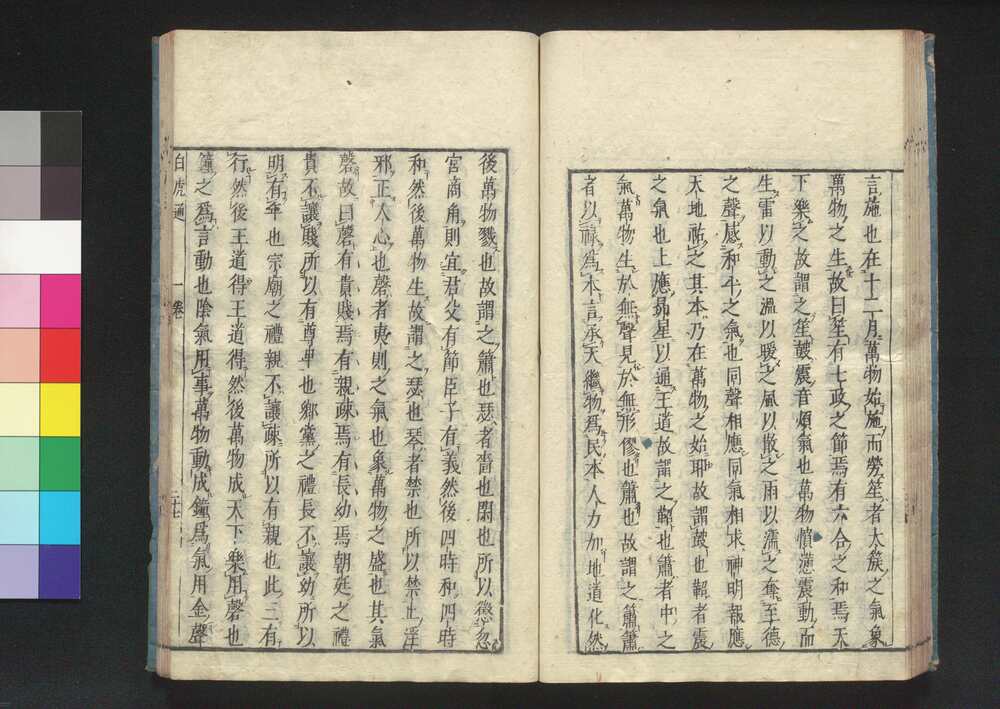 言施也在十二月萬物始施而勞笙者太簇之氣象
萬物之生故曰笙有七政之節焉有六合之和焉天
下樂之故謂之笙皷震音煩氣也萬物憤懣震動而
生雷以動之溫以暖之風以散之雨以濡之奮至德
之聲感和平之氣也同聲相應同氣相求神明報應
天地祐之其本乃在萬物之始耶故謂皷也鞀者震
之氣也上應昴星以通王道故謂之鞀也簫者中之
氣萬物生於無聲見於無形僇也簫也故謂之簫簫
者以祿為本言承天繼物為民本人力加地道化然
後萬物戮也故謂之簫也瑟者嗇也閑也所以懲忽
宮商角則宜君父有節臣子有義然後四時和四時
和然後萬物生故謂之瑟也琴者禁也所以禁止淫
邪正人心也磬者夷則之氣也象萬物之盛也其氣
磬故曰磬有貴賤焉有親疎焉有長幼焉朝廷之禮
貴不讓賤所以有尊卑也鄉黨之禮長不讓幼所以
明有年也宗廟之禮親不讓疎所以有親也此三者
行然後王道得王道得然後萬物成天下樂用磬也
鐘之爲言動也陰氣用事萬物動成鐘爲氣用金聲
白虎通 一卷